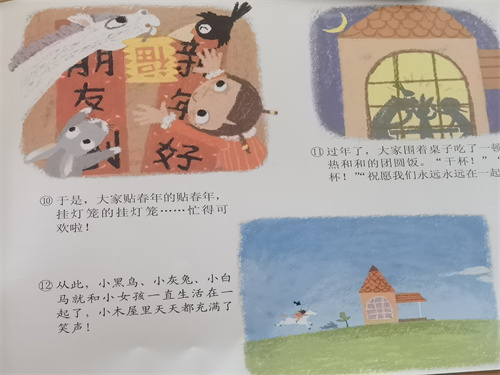 朋友到
福
新年好
⑩ 于是，大家贴春年的贴春年，
挂灯笼的挂灯笼……忙得可
欢啦！
⑪ 过年了，大家围着桌子吃了一顿
热和和的团圆饭。“干杯！”“
杯！”“祝愿我们永远永远在一起
⑫ 从此，小黑鸟、小灰兔、小白
马就和小女孩一直生活在一
起了，小木屋里天天都充满了
笑声！